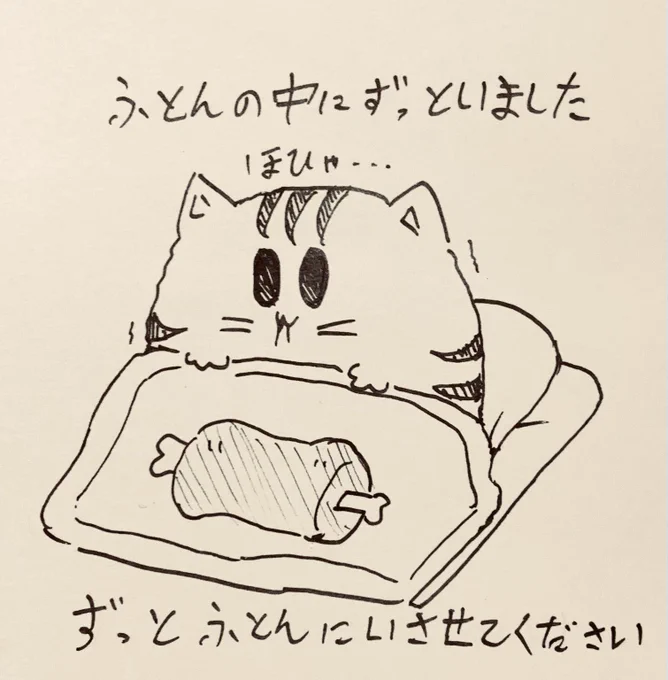 ふとんの中にずっといました
ほひゃ・・・
ずっとふとんにいさせてください